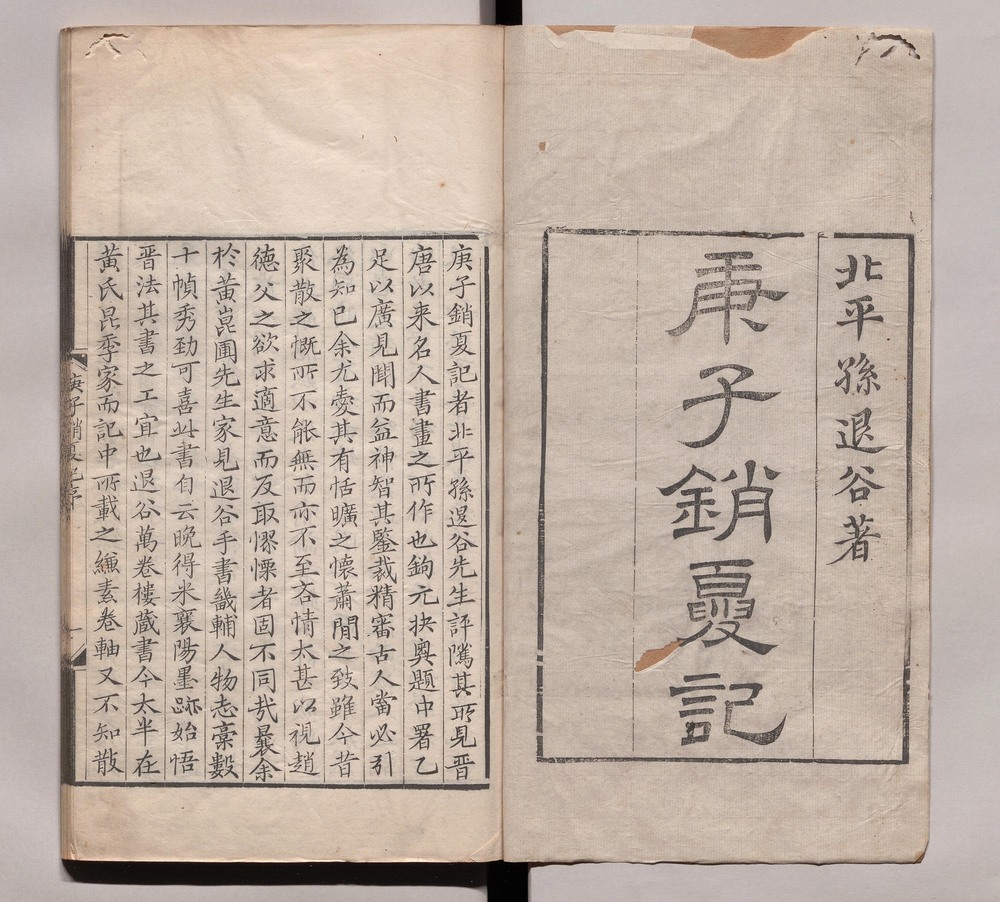 北平孫退谷著
庚子銷夏記
庚子銷夏記者北平孫退谷先生評隲其所見晉
唐以来名人書畫之所作也鉤元抉奥題中署乙
足以廣見聞而益神智其鑒裁精審古人當必引
為知己余尤愛其有恬曠之懷蕭閒之致雖今昔
聚散之慨所不能無而亦不至吝情太甚以視趙
德父之欲求適意而反取憀慄者固不同㢤曩余
於黃崑圃先生家見退谷手書畿輔人物志藁數
十幀秀勁可喜此書自云晚得米襄陽墨跡始悟
晋法其書之工宜也退谷萬卷樓蔵書今太半在
黄氏昆季家而記中所載之縑素卷軸又不知散
庚子銷夏記序
一